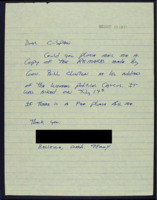 Dear C-Span
Could you please mail me a
Copy of the Remarks made by
Gov. Bill Clinton as he address
at the Women's Political Caucus. It
was aired on July 14th
If there is a fee please bill me.
Thank you